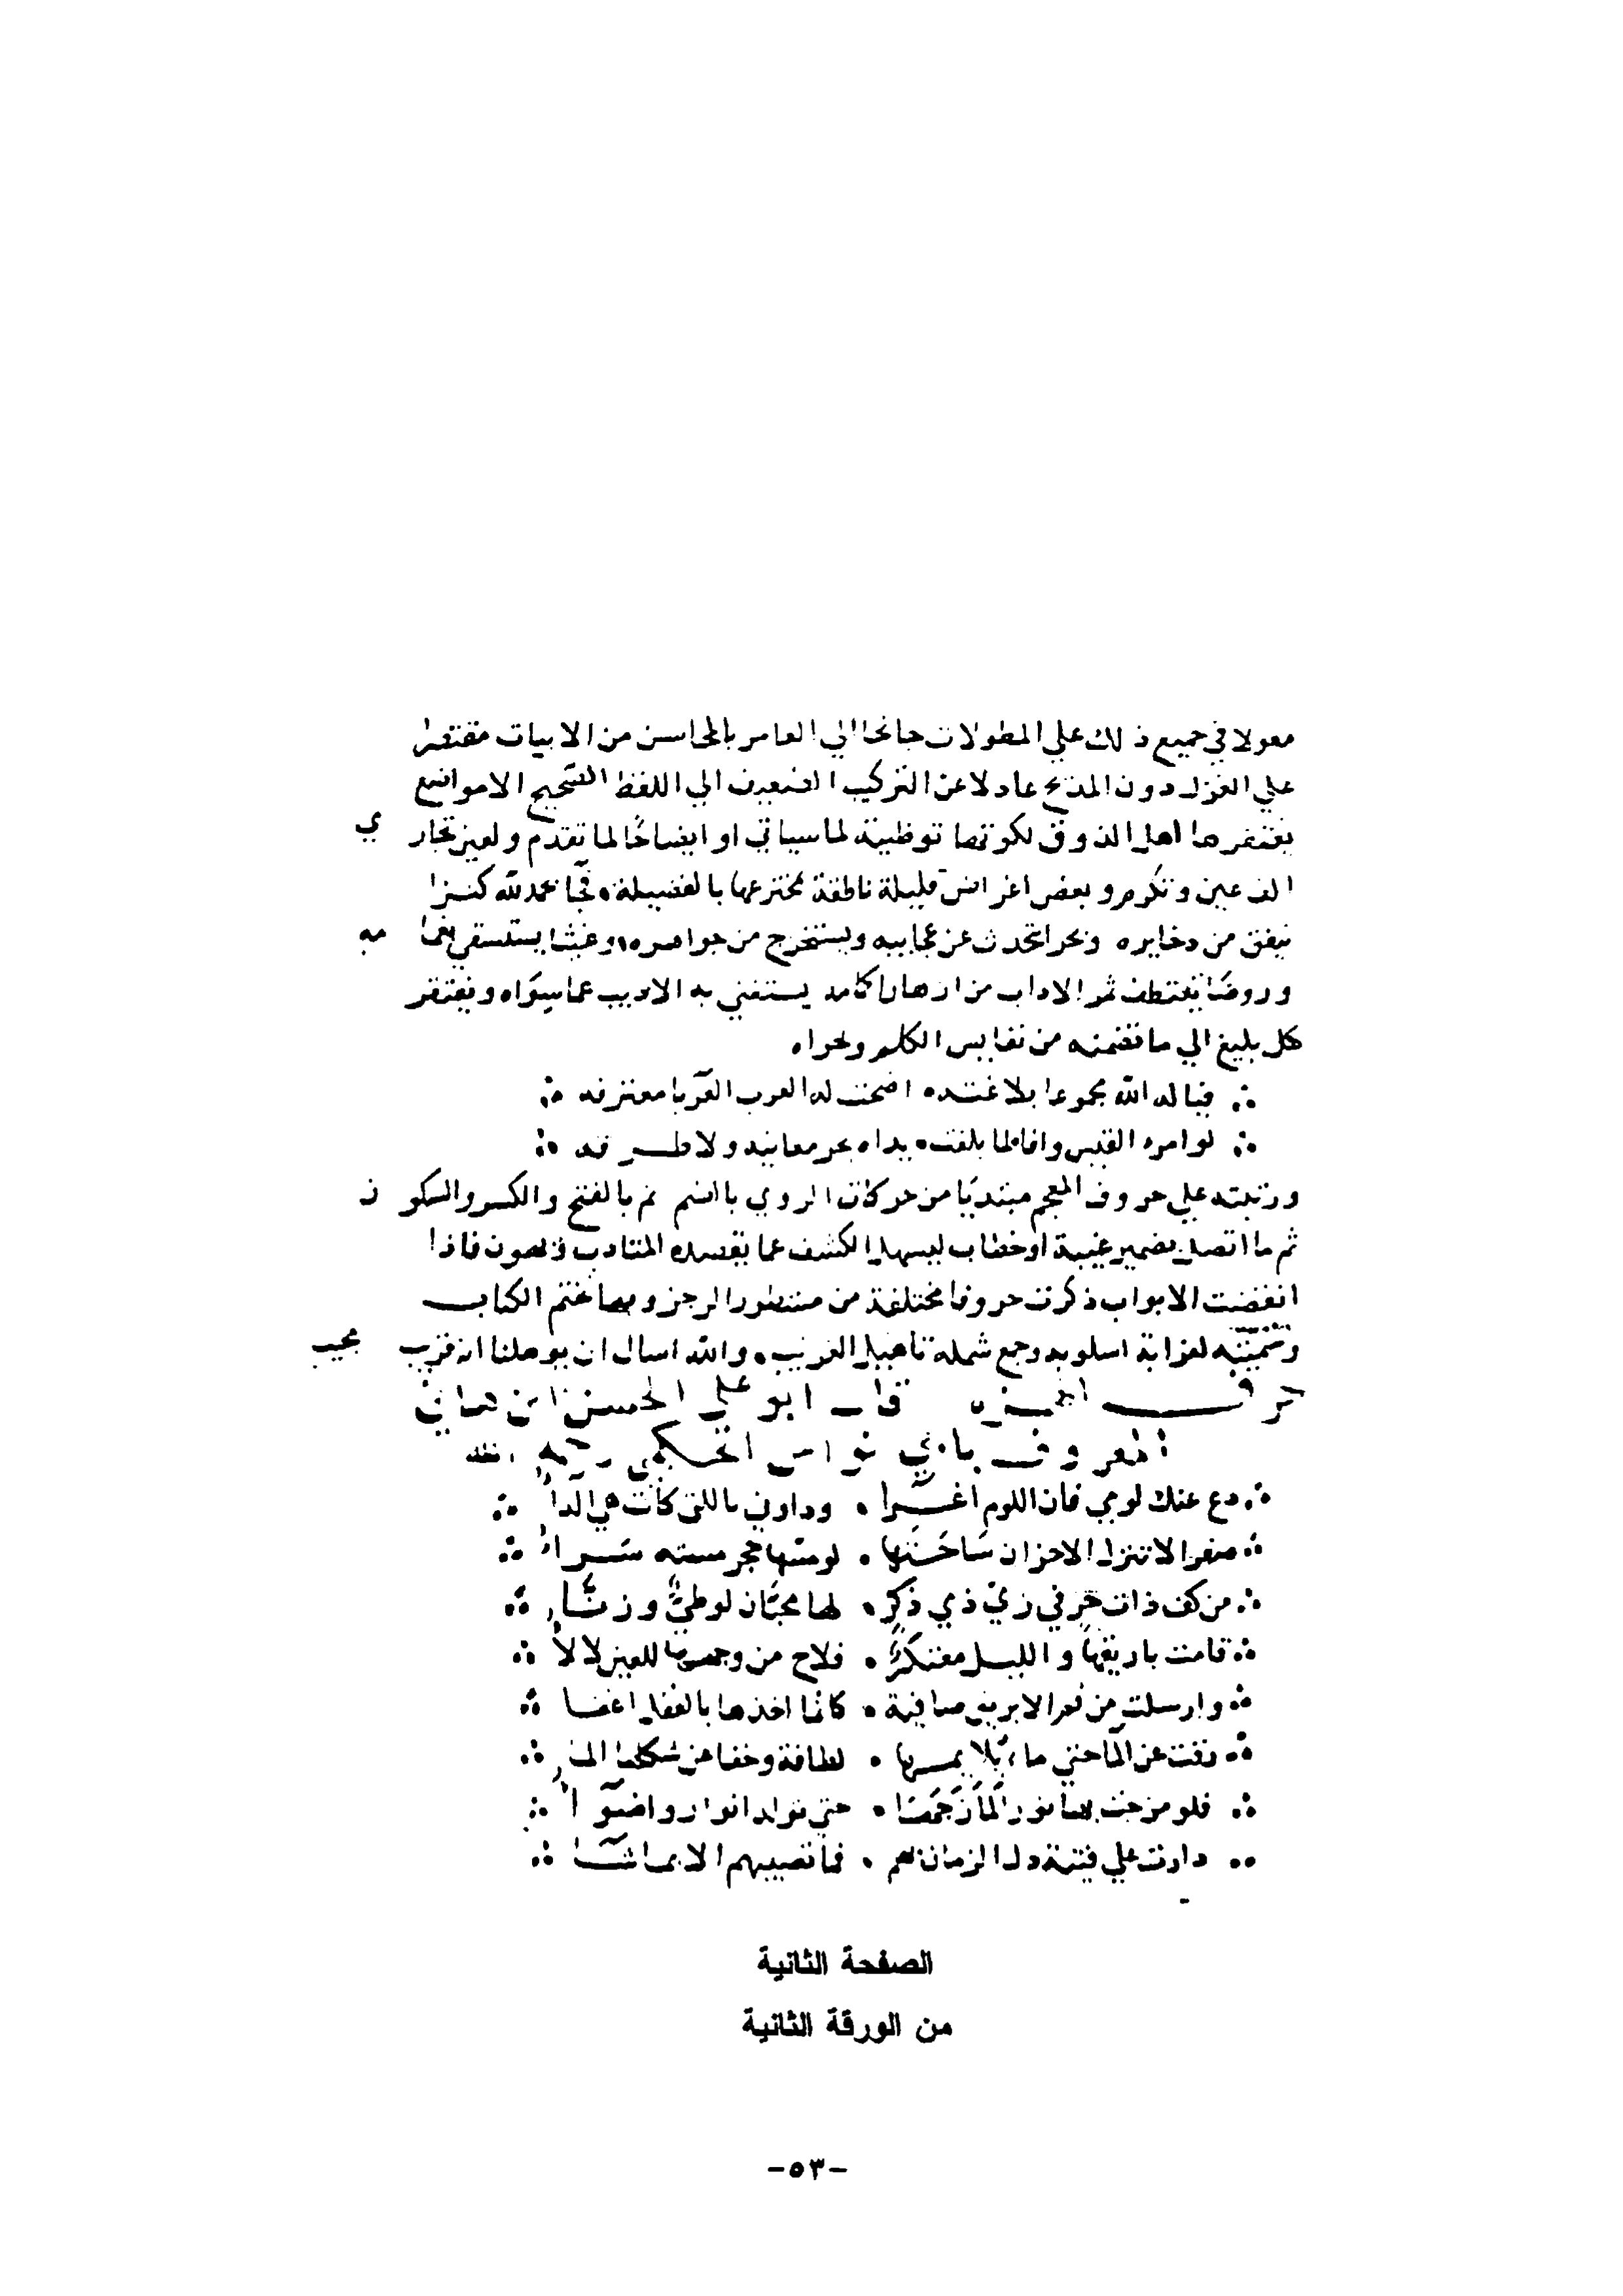 معولا في جميع ذلك علي المطولات جانحا الي العامر بالمحاسن من الابيات مقتصرا
علي الغزل دون المديح عادلا عن التركيب الضعيف الي اللفظ الصحيح الا مواضع
يغتفرها اهل الذوق لكونها توطية لما سياتي او ايضاحا لما تقدم ولعين تجاري
الف عين وتكرم وبعض اغراض قليلة ناطقة مخترعها بالفضيلة فجا بحمد لله كنزا
ينفق من دخايره وبحرا تحدث عن عجايبه ويستخرج من جواهره وغيثا يستسقي بغمامه
وروضا يقتطف ثمر الاداب من ازهار اكامه يستغني به الاديب عما سواه ويفتقر
كل بليغ الي ما تضمنه من نفايس الكلم وحواه
فياله الله مجموعا بلاغته اضحت له العرب العربا معترفه
لو امرء القيس وافاها لما بلغت يداه بحر معانيه ولا طرفه
ورتبته علي حروف المعجم مبتديا من حركات الروي بالضم ثم بالفتح والكسر والسكون
ثم ما اتصل بضمير غيبة او خطاب ليسهل الكشف عما يقصده المتادب فاذا
انقضت الابواب ذكرت حروفا مختلفة من مشطور الرجز وبها نختم الكتاب
وسميته لغرابة اسلوبه وجمع شمله تاهيل الغريب والله اسال ان يوهلنا انه قريب مجيب
حرف الهمزه قال ابو علي الحسن ابن هاني
المعروف بابي نواس الحكمي رحمه الله
دع عنك لومي فان اللوم اغرا وداوني باللتي كانت هي الدا
صفرا لا تنزل الاحزان ساحتها لو مسها حجر مسته سرا
من كف ذات حر في زي ذي ذكر لها محبان لوطي وزنا
قامت باريقها والليل معتكر فلاح من وجهها للعين لالا
وارسلت من فم الابريق صافية كانما اخذها بالعقل اغفا
رقت عن الما حتي ما يلايمها لطافة وجفا عن شكلها الما
فلو مزجت بها نورا لمازجها حتي تولد انوار واضوا
دارت علي فتية دل الزمان لهم فما تصيبهم الا بما شا
الصفحة الثانية
من الورقة الثانية
-٥٣-